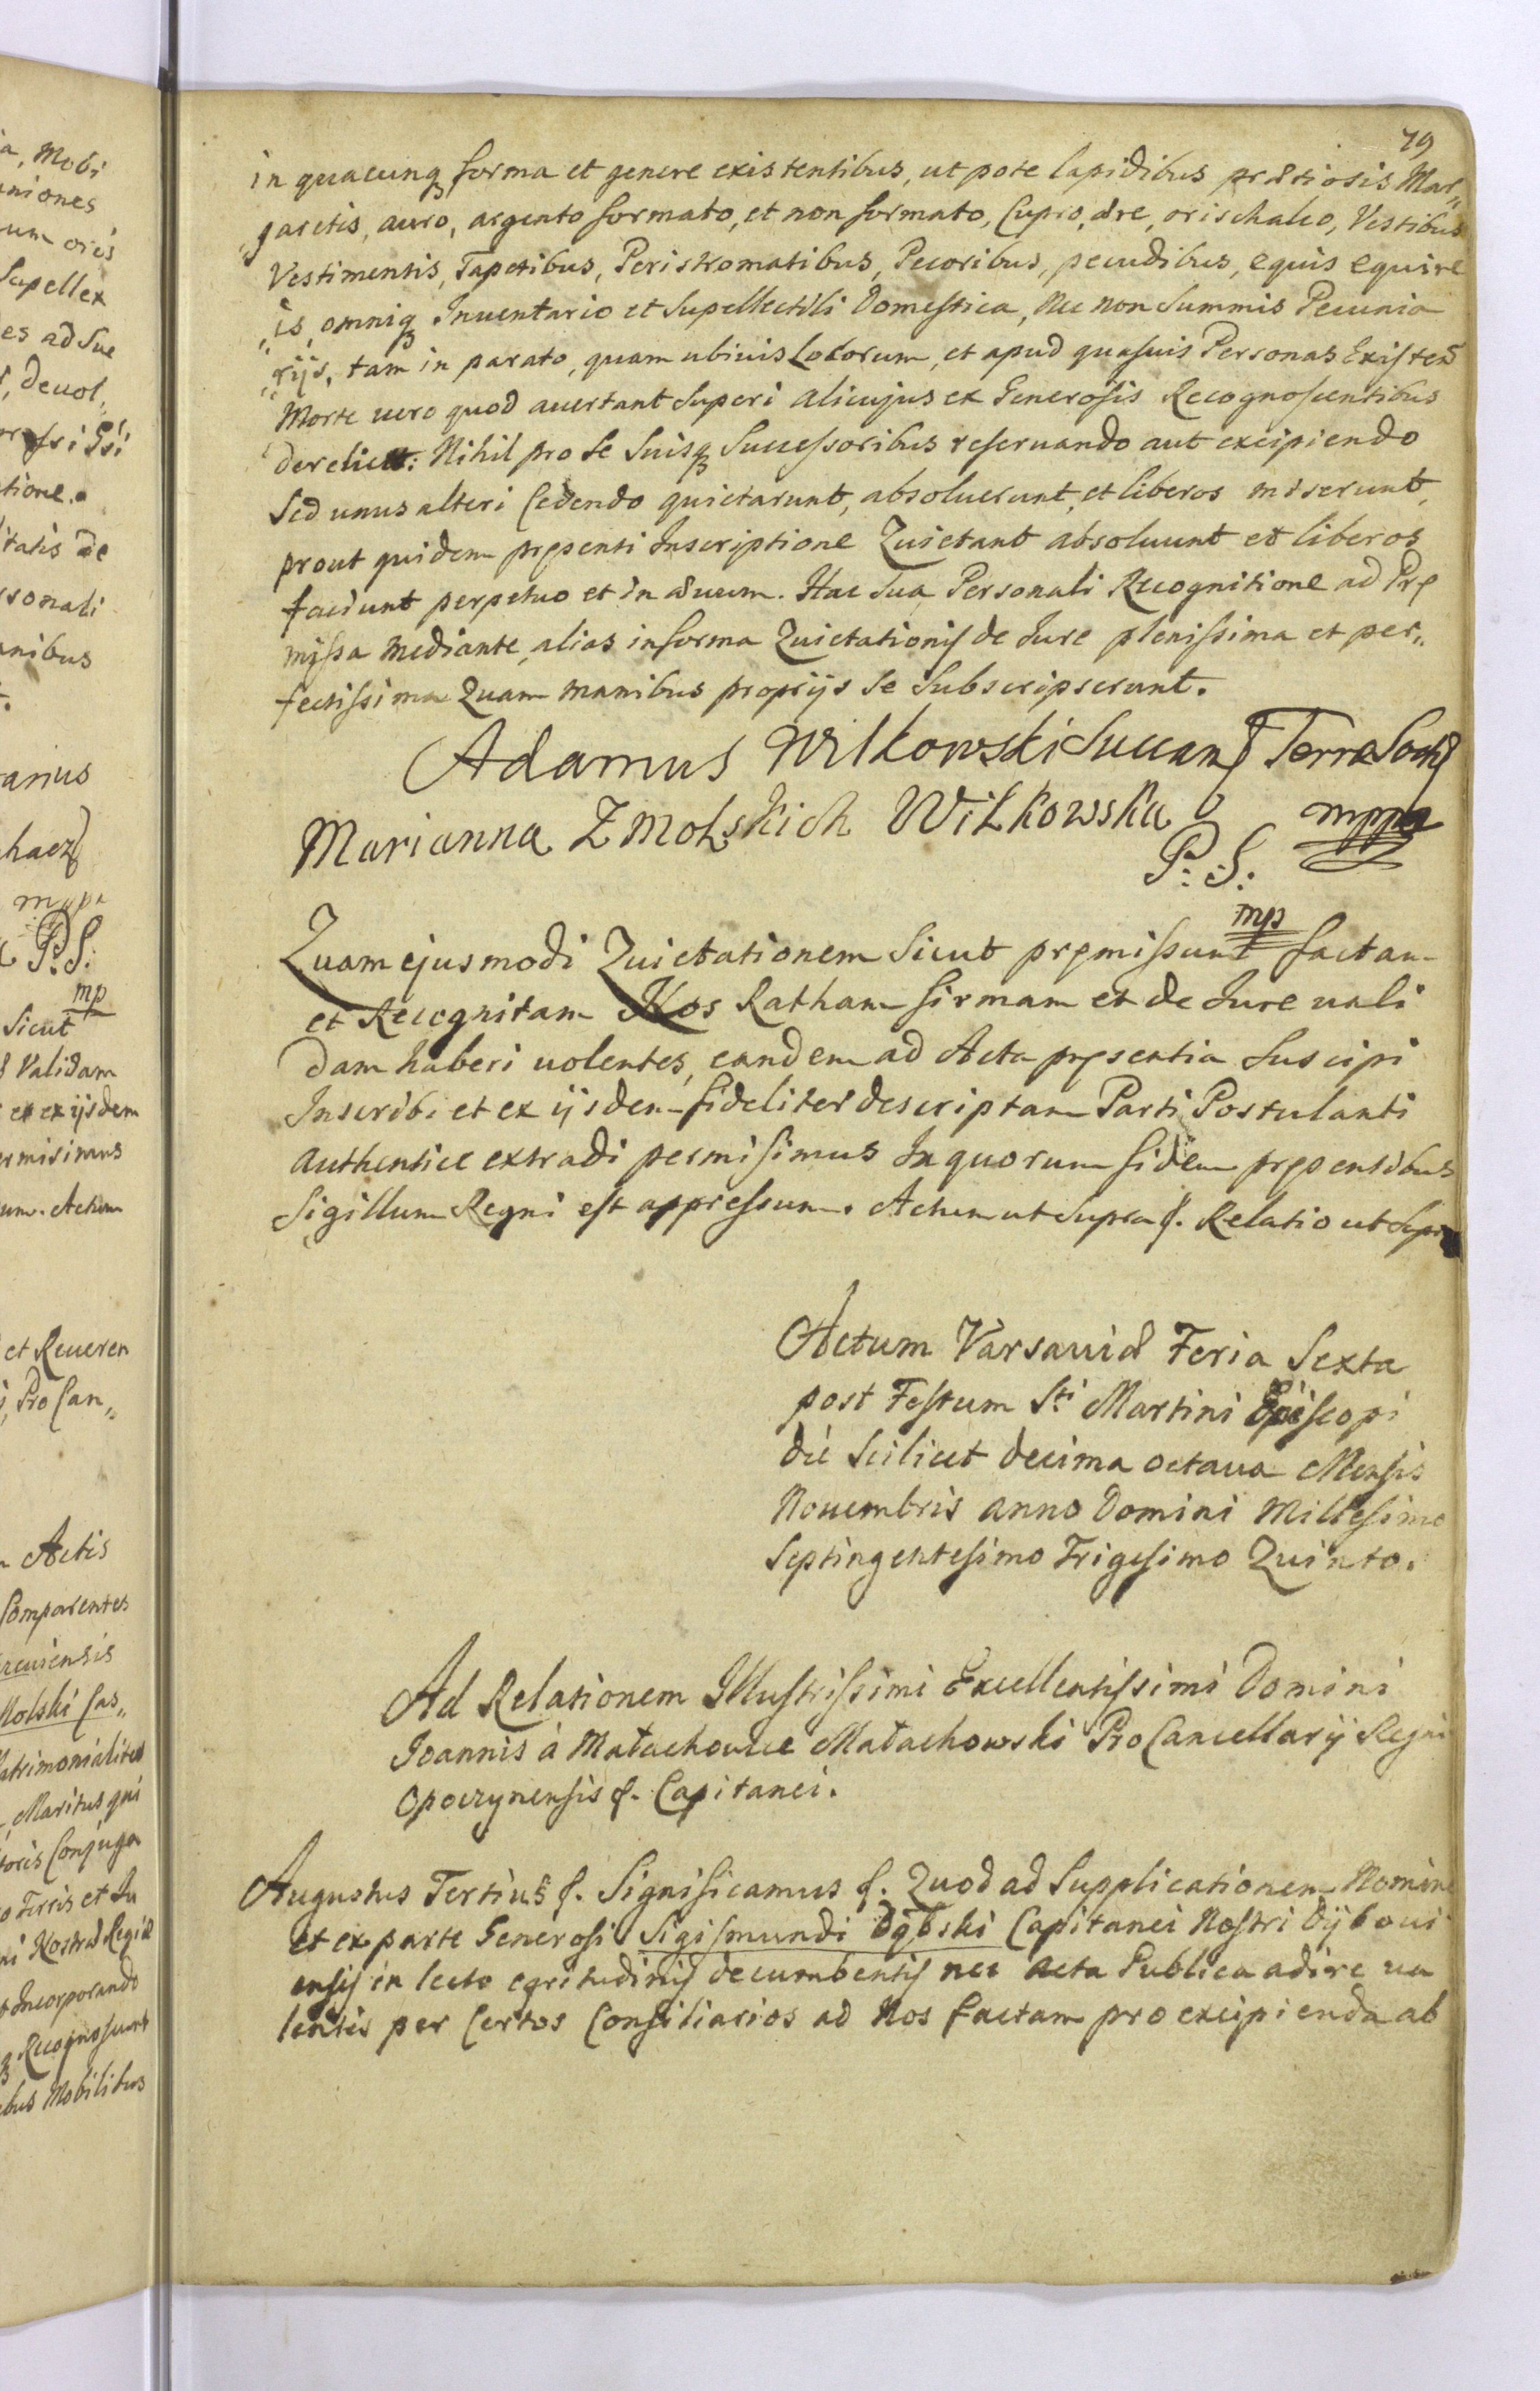 79
in quacunq forma et genere existentibus, ut pote lapidibus prætiosis Mar„
„garetis, auro, argento formato, et non formato, Cupro, ære, orischalco, Vestibus
Vestimentis, Tapetibus, Peristromatibus, Pecoribus, pecudibus, equis equire
„is, omniq Inuentario et Supellectili Domestica, Nec non Summis Pecunia
„rijs, tam in parato, quam ubiuis Locorum, et apud quasuis Personas Existen
Morte uero quod auertant Superi alicujus ex Generosis Recognoscentibus
derelict: Nihil pro se Suisq Successoribus reseruando aut excipiendo
Sed unus alteri Cedendo quietarunt, absoluerunt, et liberos miserunt,
prout quidem pręsenti Inscriptione Quietant absoluunt et liberos
faciunt perpetuo et in æuum. Hac Sua Personali Recognitione ad Prę
missa mediante, alias in forma Quietationis de Jure plenissima et per„
fectissima Quam manibus proprijs se Subscripserunt.
Adamus Wilkowski Succam Terræ Soch
Marianna Z Molskich Wilkowska mppa
P: S:
mp
Quam ejusmodi Quietationem Sicut pręmissum factam
et Recognitam Nos Ratham firmam et de Jure uali
dam haberi uolentes, eandem ad Acta pręsentia Suscipi
Inscribi et ex ijsdem fideliter descriptam Parti Postulanti
authentice extradi permisimus In quorum fidem pręsentibus
Sigillum Regni est appressum. Actum ut Supra f. Relatio ut Supra
Actum Varsauiæ Feria Sexta
post Festum Sti Martini Episcopi
die Scilicet decima octaua Mensis
Nouembris anno Domini Millesimo
Septingentesimo Trigesimo Quinto.
Ad Relationem Illustrissimi Excellentissimi Domini
Joannis à Małachowice Małachowski ProCancellarij Regni
Opocznensis f. Capitanei.
Augustus Tertius f. Significamus f. Quod ad Supplicationem Nomine
et ex parte Generosi Sigismundi Dąbski Capitanei Nostri Dijboui
ensis in lecto egritudinis decumbentis nec Acta Publica adire ua
lentis per Certos Consiliarios ad Nos factam pro excipienda ab